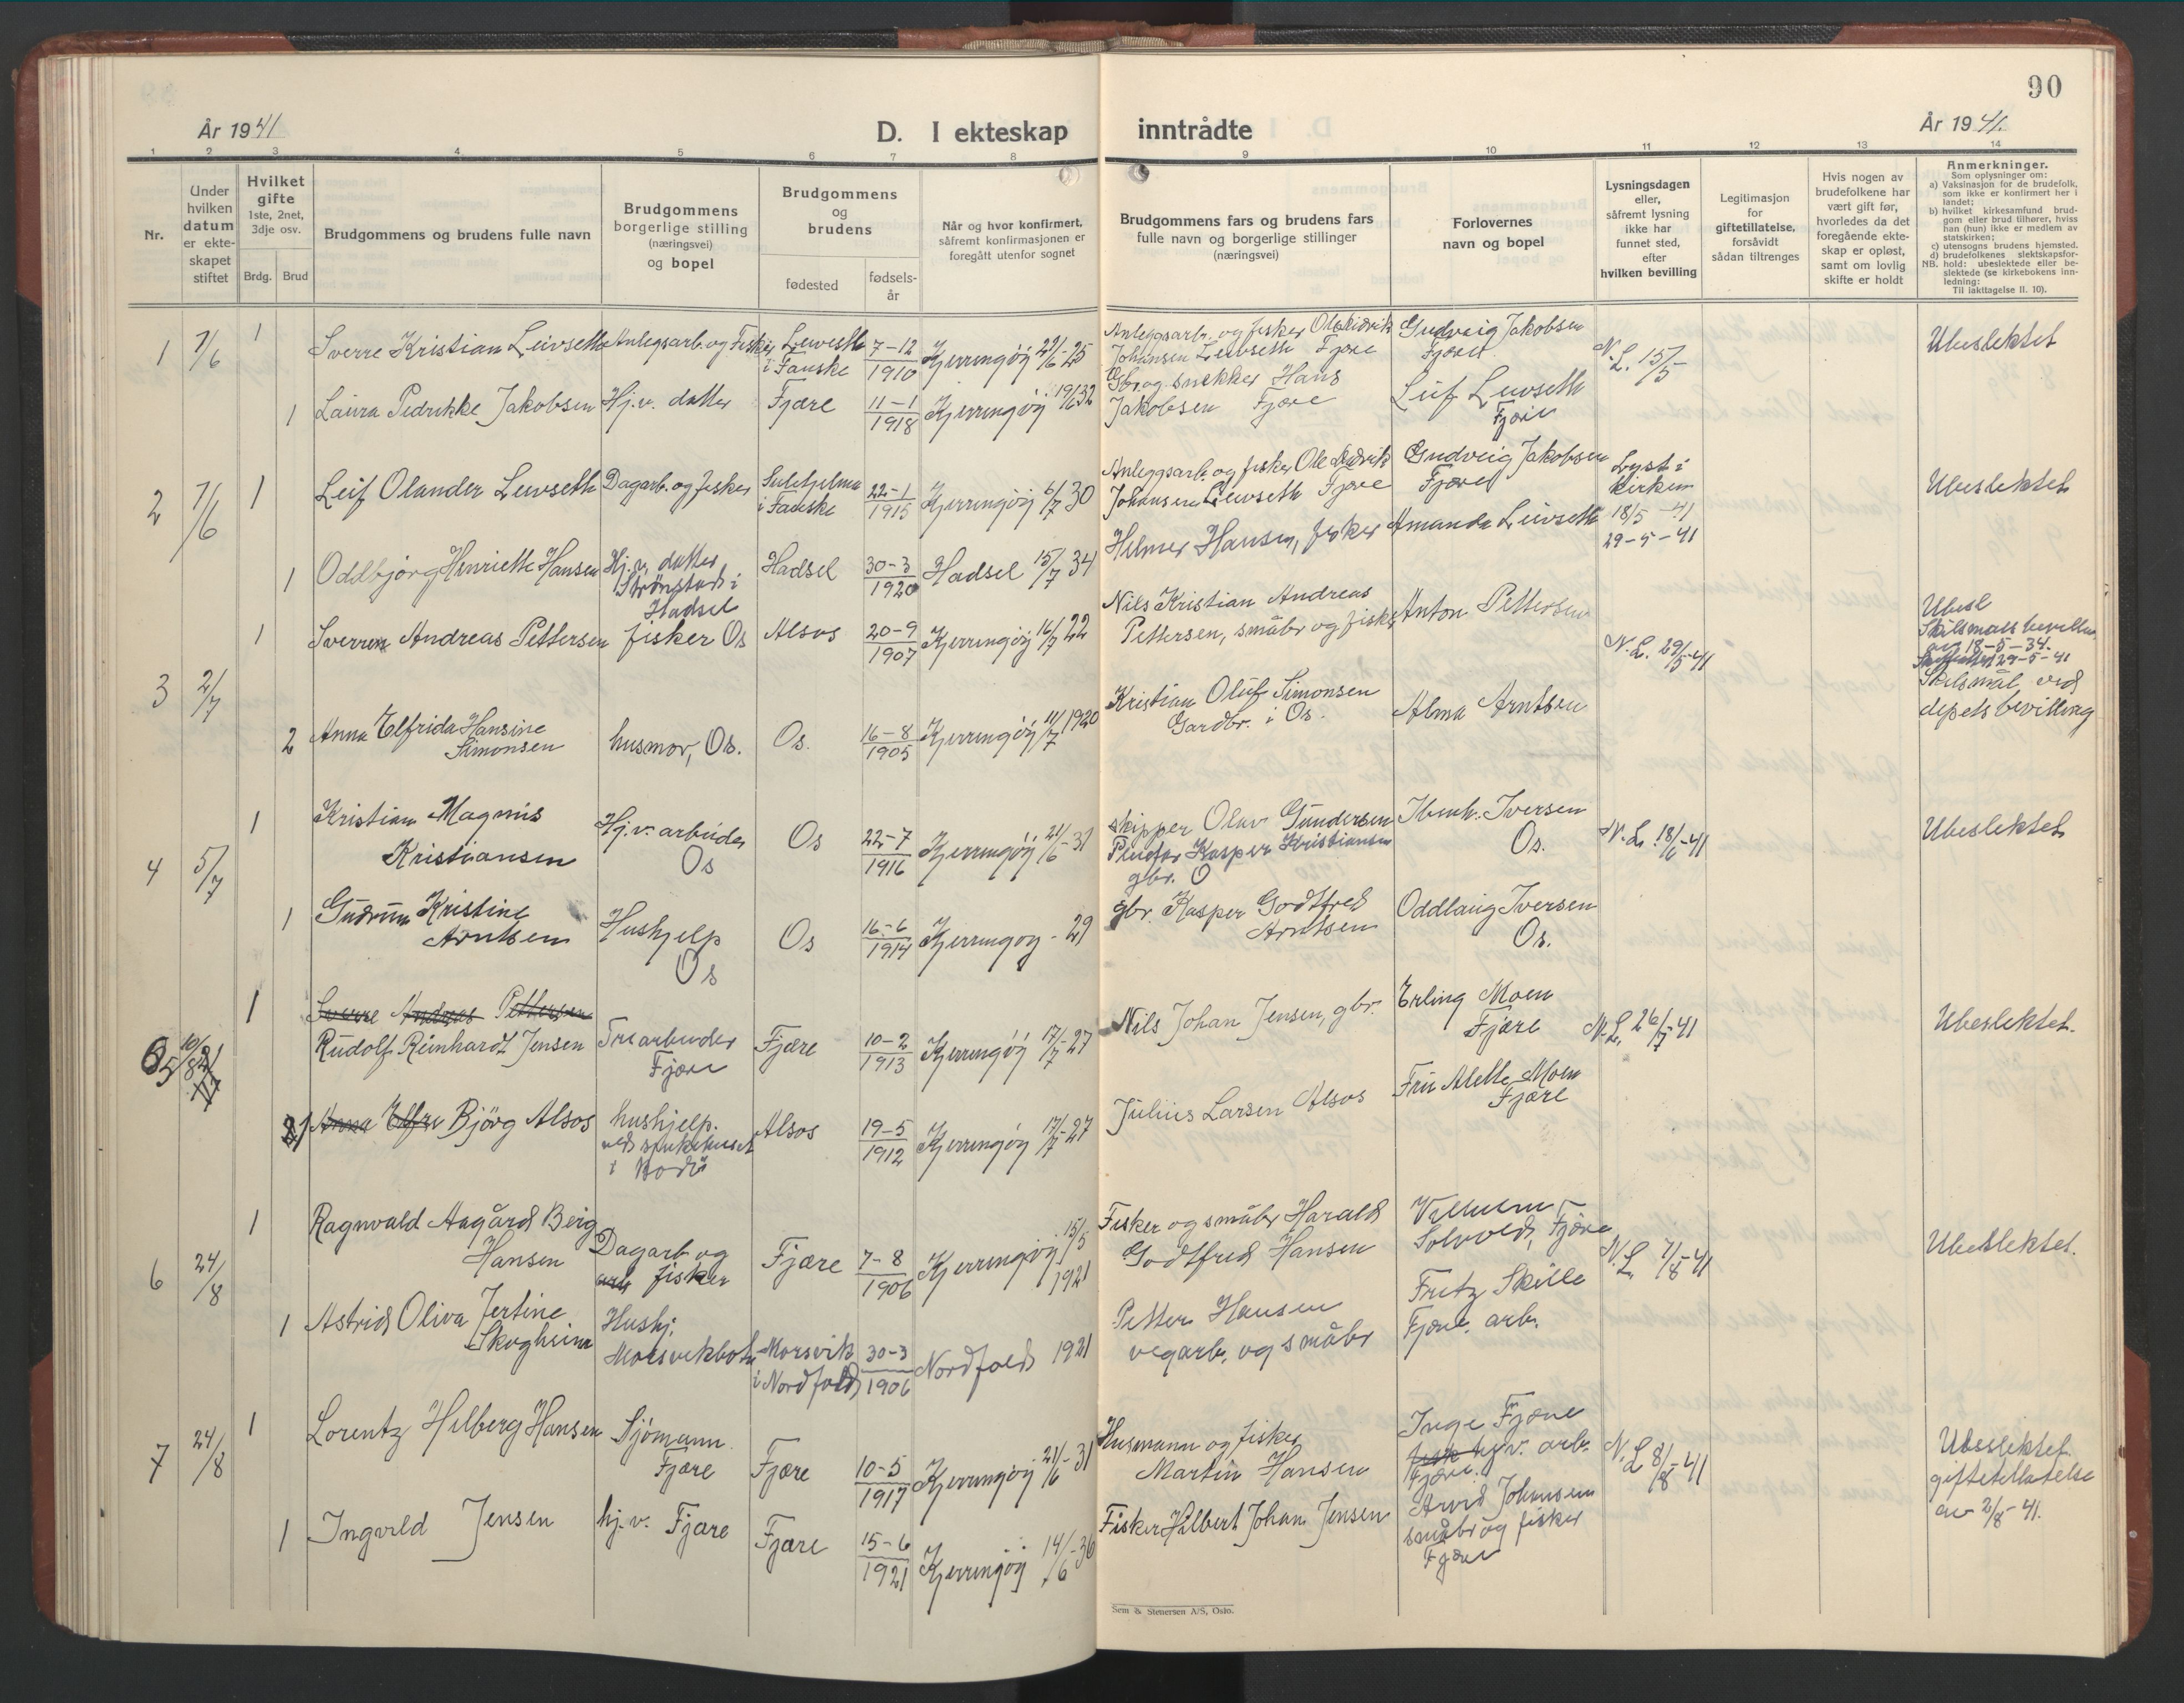 90
År 1941
D. I ekteskap
inntrådte
År 1941.
1 2 3 4 5 6 7 8 9 10 11 12 13 14
Nr.
Under
hvilken
datum
er ekte-
skapet
stiftet
Hvilket
gifte
1ste, 2net,
3dje osv.
Brdg. Brud
Brudgommens og brudens fulle navn
Brudgommens
borgerlige stilling
(næringsvei)
og bopel
Brudgommens
og
brudens
fødested
fødsels-
år
Når og hvor konfirmert,
såfremt konfirmasjonen er
foregått utenfor sognet
Brudgommens fars og brudens fars
fulle navn og borgerlige stillinger
(næringsvei)
Forlovernes
navn og bopel
Lysningsdagen
eller,
såfremt lysning
ikke har
funnet sted,
efter
hvilken bevilling
Legitimasjon
for
giftetillatelse,
forsåvidt
sådan tiltrenges
Hvis nogen av
brudefolkene har
vært gift før,
hvorledes da det
foregående ekte-
skap er opløst,
samt om lovlig
skifte er holdt
Anmerkninger.
Som oplysninger om:
a) Vaksinasjon for de brudefolk,
som ikke er konfirmert her i
landet;
b) hvilket kirkesamfund brud-
gom eller brud tilhører, hviss
han (hun) ikke er medlem av
statskirken;
c) utensogns brudens hjemsted.
d) brudefolkenes slektskapsfor-
hold: ubeslektede eller be-
slektede (se kirkebokens inn-
ledning:
NB.
Til iakttagelse II. 10).
1 7/6 1 Sverre Kristian Leivseth Anlegsarb. og Fisker Leivseth i Fauske 7-12 1910 Kjerringöy 29/6 25
Anleggsarb. og fisker Ole Didrik
Johansen Leivseth Fjære
Gudveig Jakobsen
Fjære
N. L. 15/5
Ubeslektet
1 Laura Pedrikke Jakobsen Hj. v. datter Fjære 11-1 1918 Kjerringöy 19/6 32
Gbr. og snekker Hans
Jakobsen Fjære
Leif Leivseth
Fjære
2 7/6 1 Leif Olander Leivseth Dagarb. og fisker Sulitjelma i Fauske 22-1 1915 Kjerringöy 6/7 30
Anleggsarb. og fisker Ole Didrik
Johansen Leivseth Fjære
Gudveig Jakobsen
Fjære
Lyst i
kirken
18/5 -41
29-5-41
Ubeslektet
1 Oddbjörg Henriette Hansen Hj. v. datter
Strönstad i
Hadsel
Hadsel 30-3 1920 Hadsel 15/7 34
Hilmer Hansen, fisker
Amanda Leivseth
3 2/7 1 Sverre Andreas Pettersen fisker Os Alsos 20-9 1907 Kjerringöy 16/7 22
Nils Kristian Andreas
Pettersen, småbr og fisker
Anton Pettersen
N. L. 29/5-41
Ubesl
Skilsmals bevilln.
av 18-5-34.
29-5-41
Skilsmål ved
depets bevilling
2 Anna Elfrida Hansine
Simonsen
husmor, Os. Os. 16-8 1905 Kjerringöy 11/7 1920
Kristian Oluf Simonsen
Gardbr. i Os.
Alma Arntsen
4 5/7 1 Kristian Magnus
Kristiansen
Hj. v. arbeider
Os
Os 22-7 1916 Kjerringöy 21/6-31
skipper Olav Gundersen
Pleiefar Kasper Kristiansen
gbr. O
Iversen
Os.
N. L. 18/6-41
Ubeslektet
1 Gudrun Kristine
Arntsen
Hushjelp
Os
Os 16-6 1914 Kjerringöy - 29
gbr. Kasper Godtfred
Arntsen
Oddlaug Iversen
Os.
5 10/8 1 Sverre Andreas Pettersen
Rudolf Reinhardt Jensen Trearbeider
Fjære
Fjære 10-2 1913 Kjerringöy 17/7-27
Nils Johan Jensen, gbr.
Erling Moen
Fjære
N. L. 26/7-41
Ubeslektet.
1 Anna Elfri Björg Alsos hushjelp.
ved sykehuset
i Bodö
Alsos 19-5 1912 Kjerringöy 17/7-27
Julius Larsen Alsos
Fru Alette Moen
Fjære
6 24/8 1 Ragnvald Aagård Berg
Hansen
Dagarb. og
arb fisker
Fjære 7-8 1906 Kjerringöy 15/5 1921
Fisker og småbr Harald
Godtfred Hansen
Vilhelm
Solvold, Fjære
N. L. 7/8-41
Ubeslektet.
1 Astrid Oliva Jertine
Skogheim
Hushj.
Morsvikbotn
Morsvik
i Nordfold
30-3 1906 Nordfold 1921
Petter Hansen
vegarb. og småbr
Fritz Skille
Fjære. arb.
7 24/8 1 Lorentz Hilberg Hansen Sjömann
Fjære
Fjære 10-5 1917 Kjerringöy 21/6-31
Husmann og fisker
Martin Hansen
Inge Fjære
fisk hj v. arb.
Fjære.
N. L 8/8-41
Ubeslektet.
giftetillatelse
av 2/8-41.
1 Ingvild Jensen hj. v. Fjære Fjære 15-6 1921 Kjerringöy 14/6-36
Fisker Hilbert Johan Jensen
Arvid Johansen
småbr og fisker
Fjære
Sem & Stenersen A/S, Oslo.